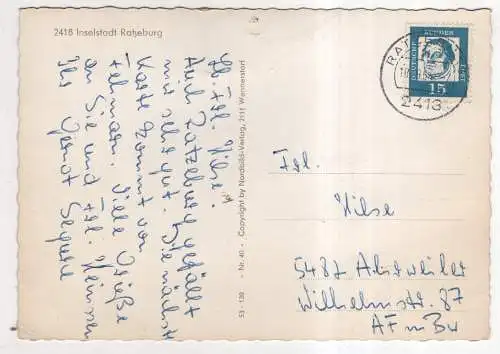 2418 Inselstadt Ratzeburg
Lb. Frl. Hilse!
Auch Ratzeburg gefällt
mir sehr gut. Die nächste
Karte kommt von
Fehmarn. Viele Grüße
an Sie und Frl.
Ihr Gernot
53 - 138 - Nr. 40 - Copyright by Nordbild-Verlag, 2111 Wennerstorf
DEUTSCHE BUNDESPOST
15
2418
Frl.
Hilse
5487 Altweiler
Wilhelmstr. 87